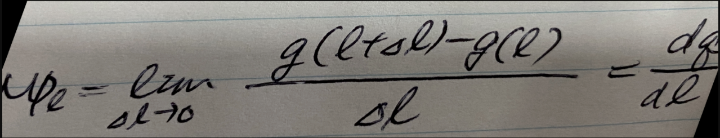 φₑ = lim Δl→0 g(l+Δl)-g(l) / Δl = dg / dl